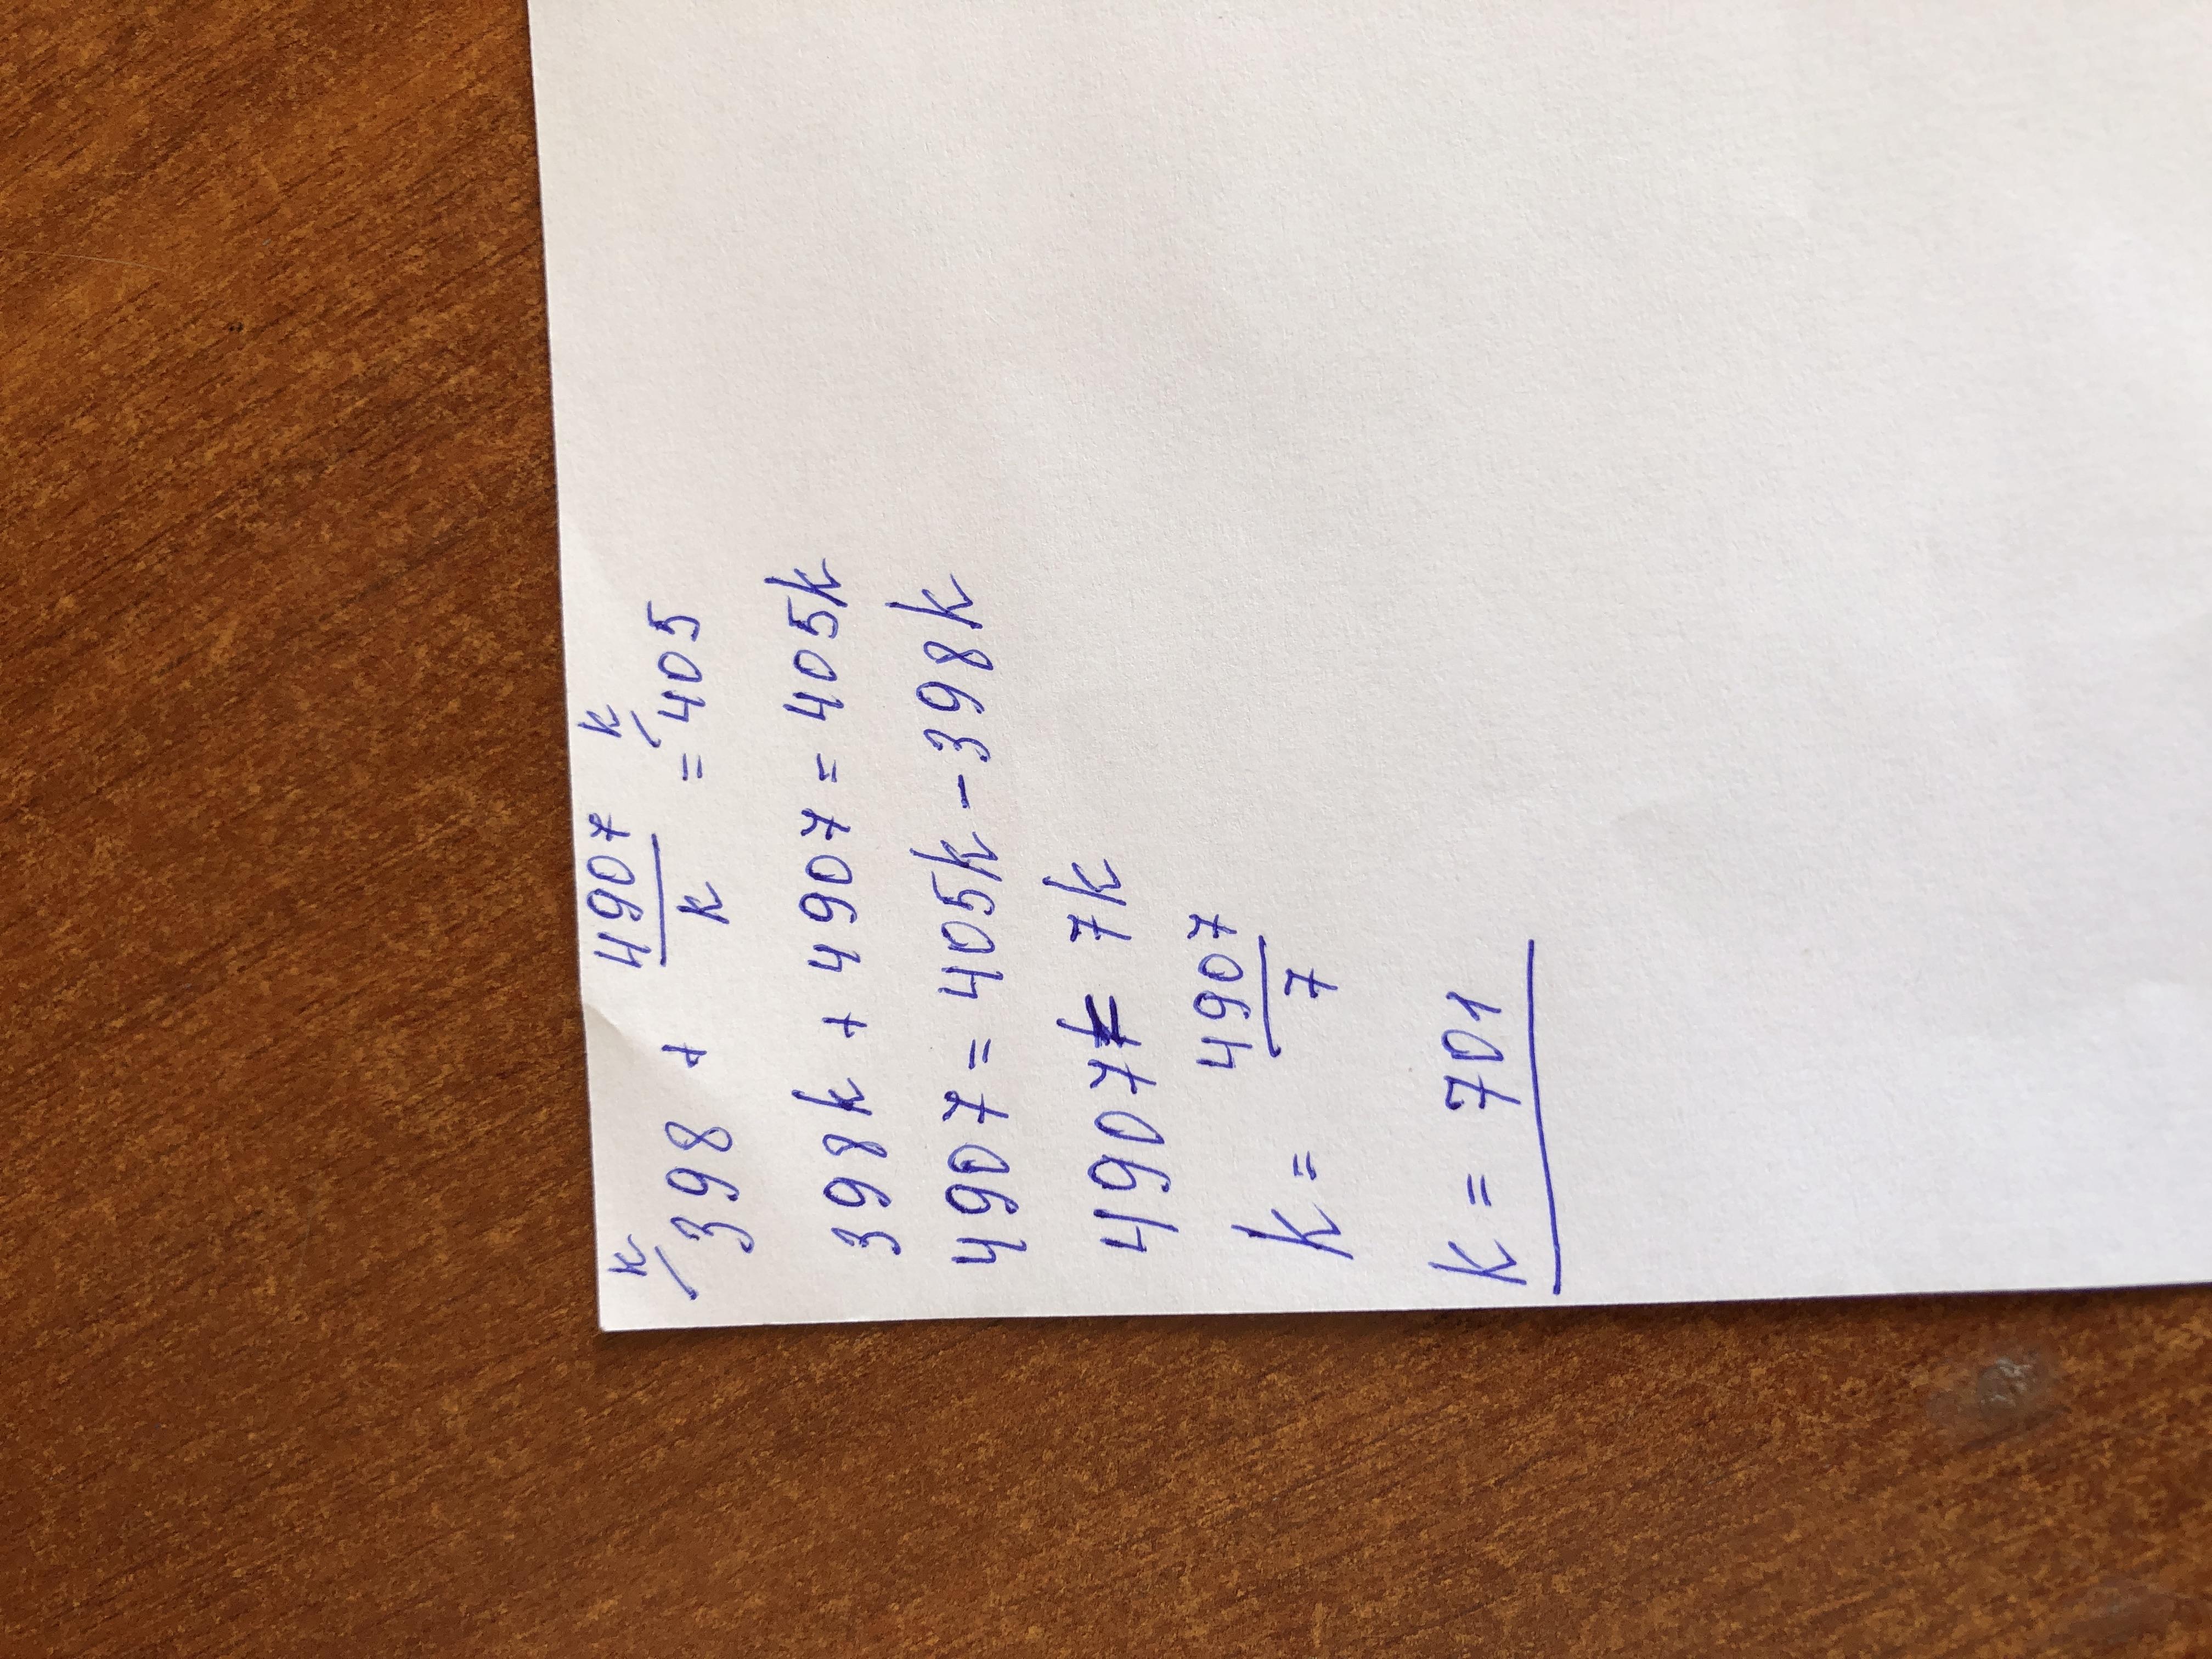 k/398 + 4907/k = k/405
398k + 4907 = 405k
4907 = 405k - 398k
4907 = 7k
k = 4907/7
k = 701